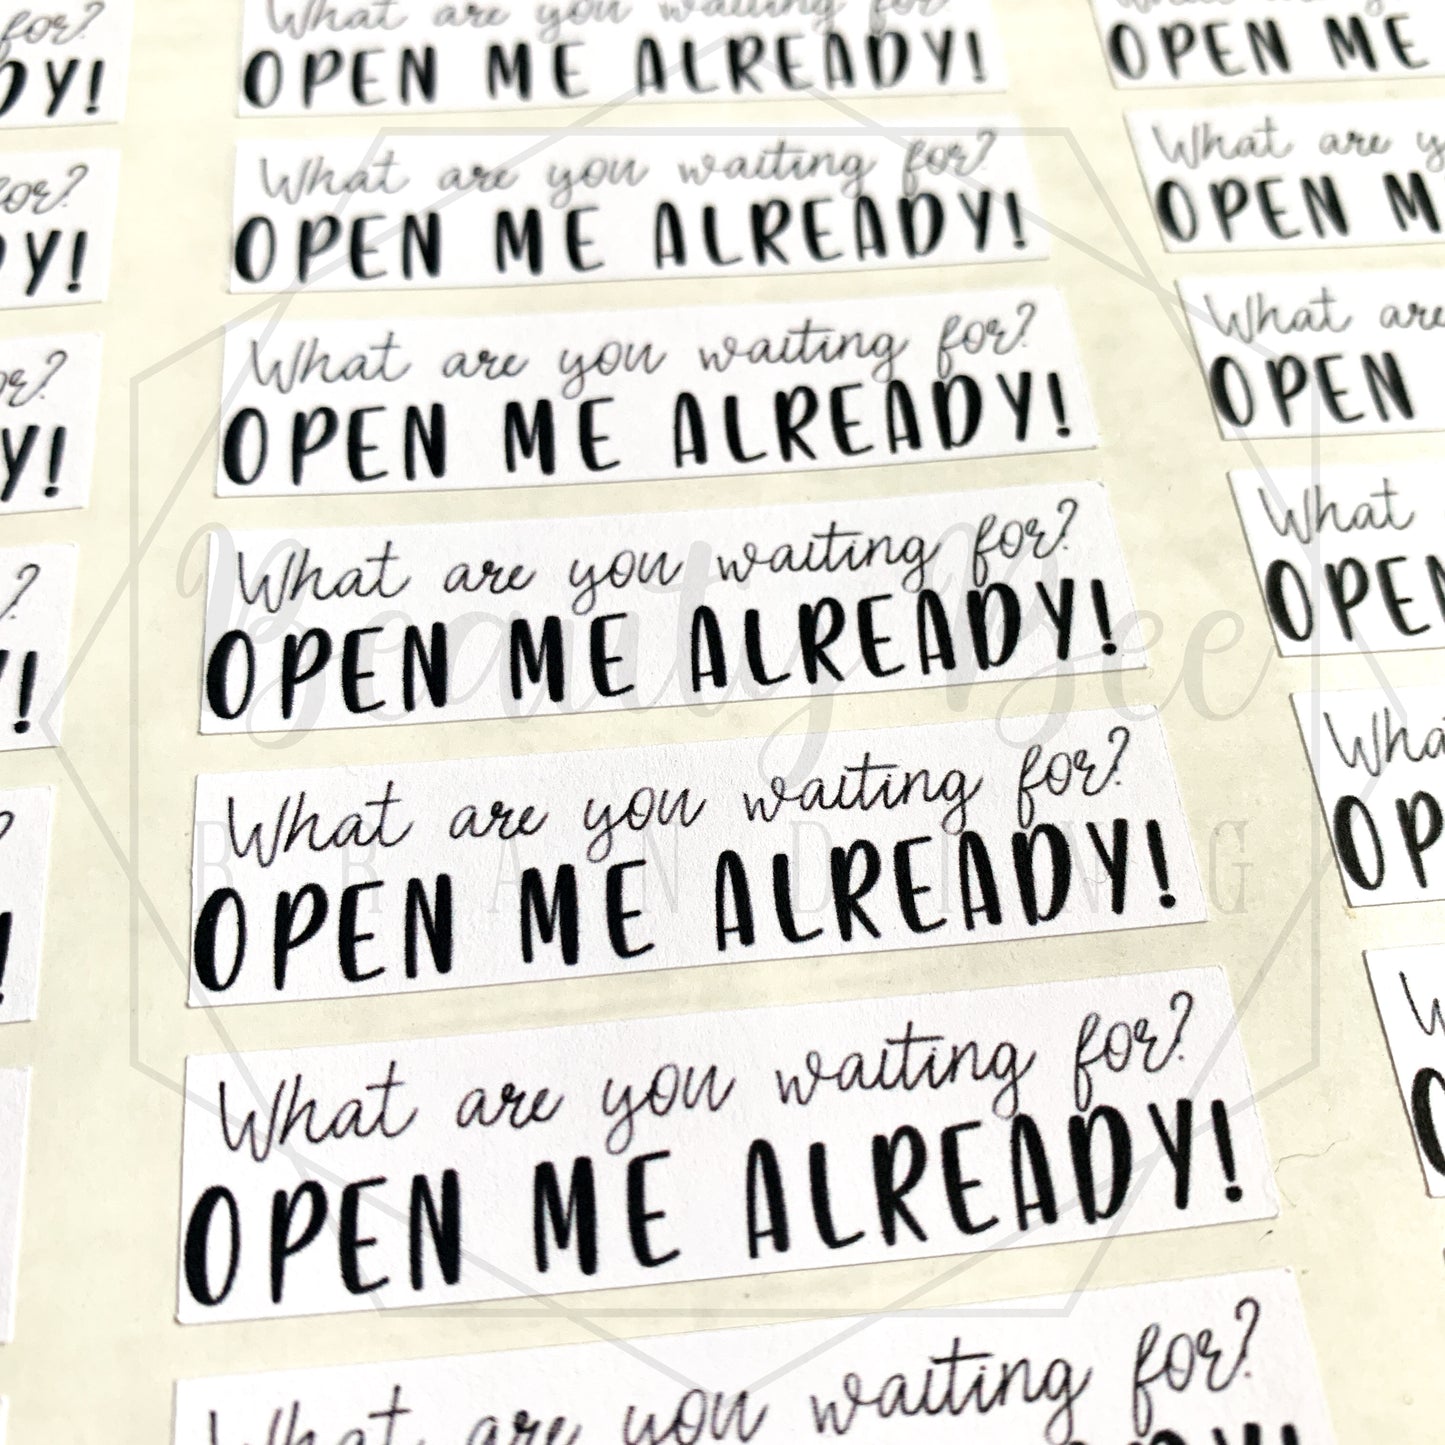 for?
DY!
What are you waiting for
OPEN ME ALREADY!
OPEN ME
for?
Y!
What are you waiting for?
OPEN ME ALREADY!
What are y
OPEN M
or?
Y!
What are you waiting for?
OPEN ME ALREADY!
What are
OPEN
?
Y!
What are you waiting for?
OPEN ME ALREADY!
What
OPEN
Beauty Bee
?
!
What are you waiting for?
OPEN ME ALREADY!
Wha
OP
BRANDING
What are you waiting for?
OPEN ME ALREADY!
W
O
What are you waiting for?